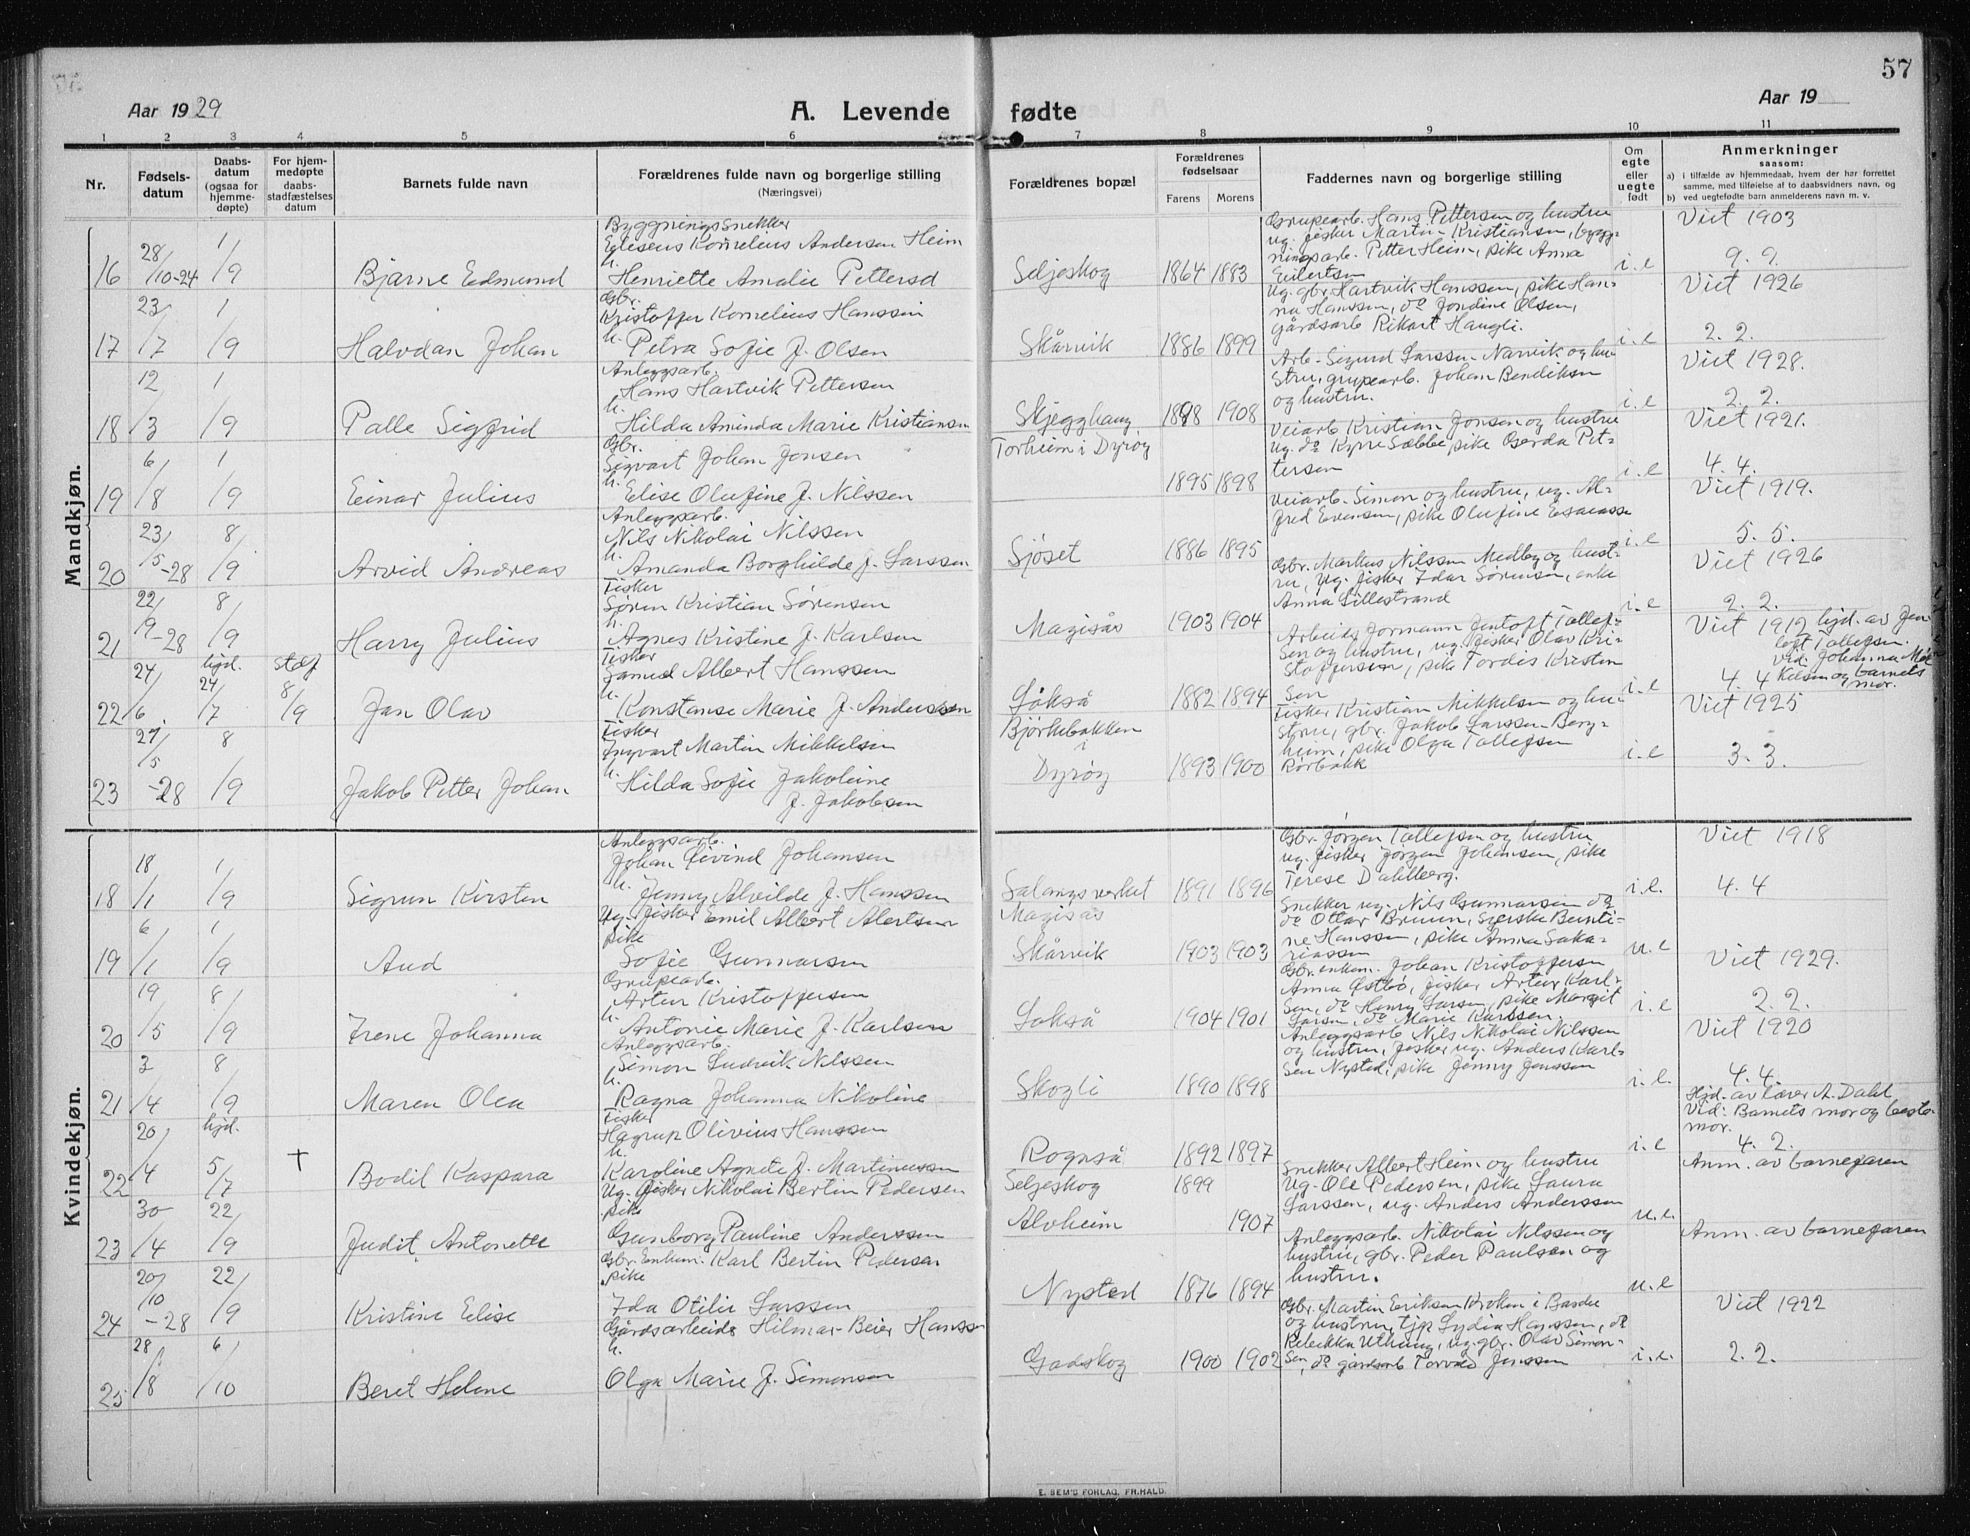 57
Aar 1929
A. Levende fødte
Aar 19
1 2 3 4 5 6 7 8 9 10 11
Nr.
Fødsels-
datum
Daabs-
datum
(ogsaa for
hjemme-
døpte)
For hjem-
medøpte
daabs-
stadfæstelses
datum
Barnets fulde navn
Forældrenes fulde navn og borgerlige stilling
(Næringsvei)
Forældrenes bopæl
Forældrenes
fødselsaar
Farens Morens
Faddernes navn og borgerlige stilling
Om
egte
eller
uegte
født
Anmerkninger
saasom:
a) i tilfælde av hjemmedaab, hvem der har forrettet
samme, med tilføielse af to daabsvidners navn, og
b) ved uegtefødte barn anmelderens navn m. v.
Mandkjøn.
16 28/10-24 1/9 Bjarne Edmund
Bygningssnekker
Edisens Kornelius Andersen Heim
h. Henriette Amalie Pettersd
Seljeskog 1864 1883
Grupearb. Hans Pettersen og hustru
ug. fisker Martin Kristiansen, bygg-
ningsarb. Petter Heim, pike Anna
Eilertsen
i. e
Viet 1903
9. 9.
17 23/7 1/9 Halvdan Johan
Gbr.
Kristoffer Kornelius Hanssen
h. Petra Sofie J. Olsen
Skårvik 1886 1899
Ug. gbr Hartvik Hanssen, pike Han-
na Hanssen, do Jondine Olsen,
gårdsarb Rikart Haugli.
i. e
Viet 1926
2. 2.
18 12/3 1/9 Palle Sigfrid
Anleggsarb.
Hans Hartvik Pettersen
h. Hilda Aminda Marie Kristiansen
Skjegghaug 1898 1908
Arb. Sigurd Larssen Narvik og hu-
stru, grupearb. Johan Bendiksen
og hustru.
i. e
Viet 1928.
2. 2.
19 6/8 1/9 Einar Julius
Gbr.
Sigvart Johan Jonsen
h. Elise Olufine J. Nilssen
Torheim i Dyrøy
1895 1898
Veiarb Kristian Jonsen og hustru
ug. do Kyrre Sæbbe, pike Gerda Pet-
tersen
i. e
Viet 1921.
4. 4.
20 23/5-28 8/9 Arvid Andreas
Anleggsarb.
Nils Nikolai Nilssen
h. Amanda Borghilde J. Larssen
Sjöset 1886 1895
Veiarb. Simon og hustru, ug. Al-
fred Evensen, pike Olufine Esaiassen
i. e
Viet 1919.
5. 5.
21 22/9-28 8/9 Harry Julius
Fisker
Søren Kristian Sörensen
h. Agnes Kristine J. Karlsen
Magisås 1903 1904
Gbr. Markus Nilssen Medby og hust-
ru, ug. fisker Idar Sørensen, enke
Anna Lillestrand
i. e
Viet 1926
2. 2.
22 24/6 hjd. 24/7 stdf 8/9 Jan Olav
Fisker
Samuel Albert Hanssen
h. Konstanse Marie J. Anderssen
Løkså 1882 1894
Arbeider Jormann Jentoft Tollef-
sen og hustru, ug. fisker Olav Kri-
stoffersen, pike Tordis Kristen
sen
i. e
Viet 1912 hjd. av Jen
toft Tollefsen.
vid: Johanna Mik
kelsen og barnets
mor.
4. 4
23 27/5-28 8/9 Jakob Petter Johan
Fisker
Ingvart Martin Mikkelsen
h. Hilda Sofie Jakobine
J. Jakobsen
Bjørkebakken
i
Dyrøy
1893 1900
Fisker Kristian Mikkelsen og hu-
stru, gbr. Jakob Larssen Berg-
heim, pike Olga Tollefsen
Rørbakk
i. e
Viet 1925
3. 3.
Kvindekjøn.
18 18/1 1/9 Sigrun Kirsten
Anleggsarb.
Johan Eivind Johansen
h. Jenny Alvilde J. Hanssen
Salangsverket 1891 1896
Gbr. Jörgen Tollefsen og hustru
ug. fisker Jørgen Johansen, pike
Terese Dahlberg.
i. e.
Viet 1918
4. 4
19 6/1 1/9 Aud
Ug. fisker Emil Albert Alertsen
pike
Sofie Gunnarsen
Magisås
Skårvik 1903 1903
Snekker ug. Nils Gunnarsen do
do Ottar Bruun, Sverske Bunti-
ne Hanssen, pike Anna Saka-
riassen
u. e
20 19/5 8/9 Irene Johanna
Grupearb.
Artur Kristoffersen
h. Antonie Marie J. Karlsen
Løkså 1904 1901
Gbr. enkem. Johan Kristoffersen
Anna Østbø, fisker Artur Karl-
sen, do Henry Larsen, pike Margit
Larsen, do Marie Karlsen.
i. e
Viet 1929.
2. 2.
21 3/4 8/9 Maren Olea
Anleggsarb.
Simon Ludvik Nilssen
h. Ragna Johanna Nikoline
Skogli 1890 1898
Anleggsarb Nils Nikolai Nilssen
og hustru, fisker ug. Anders Karl-
sen Nysted, pike Jenny Jenssen
i. e.
Viet 1920
4. 4.
22 20/4 hjd. 5/7 † Bodil Kaspara
Fisker
Hagrup Olivius Hanssen
h. Karoline Agnete J. Martinussen
Rognså 1892 1897
i. e
Hjd. av lærer A. Dahl
Vid: Barnets mor og beste-
mor.
4. 2.
23 30/4 22/9 Judit Antonette
Ug. fisker Nikolai Bertin Pedersen
pike
Gunborg Pauline Anderssen
Seljeskog 1899
Alvheim 1907
Snekker Albert Heim og hustru
Ug. Ole Pedersen, pike Laura
Larssen, ug. Anders Anderssen
u. e.
Anm. av barnefaren
24 20/10-28 22/9 Kristine Elise
Gbr. Enkem. Karl Bertin Pedersen
pike
Ida Otilie Larssen
Nysted 1876 1894
Anleggsarb. Nikolai Nilssen og
hustru, gbr. Peder Paulsen og
hustru.
u. e
Anm. av barnefaren
25 28/8 6/10 Beret Helene
Gårdsarbeider Hilmar Beier Hanssen
h.
Olga Marie J. Simonsen
Godskog 1900 1902
Gbr. Martin Eriksen Krohen i Bardu
og hustru, tjp Lydia Hanssen, do
Rebekka Uthaug, ug. gbr. Olav Simon-
sen, do gårdsarb Torvald Jenssen
i. e.
Viet 1922
2. 2.
E. SEM'S FORLAG, FR.HALD.